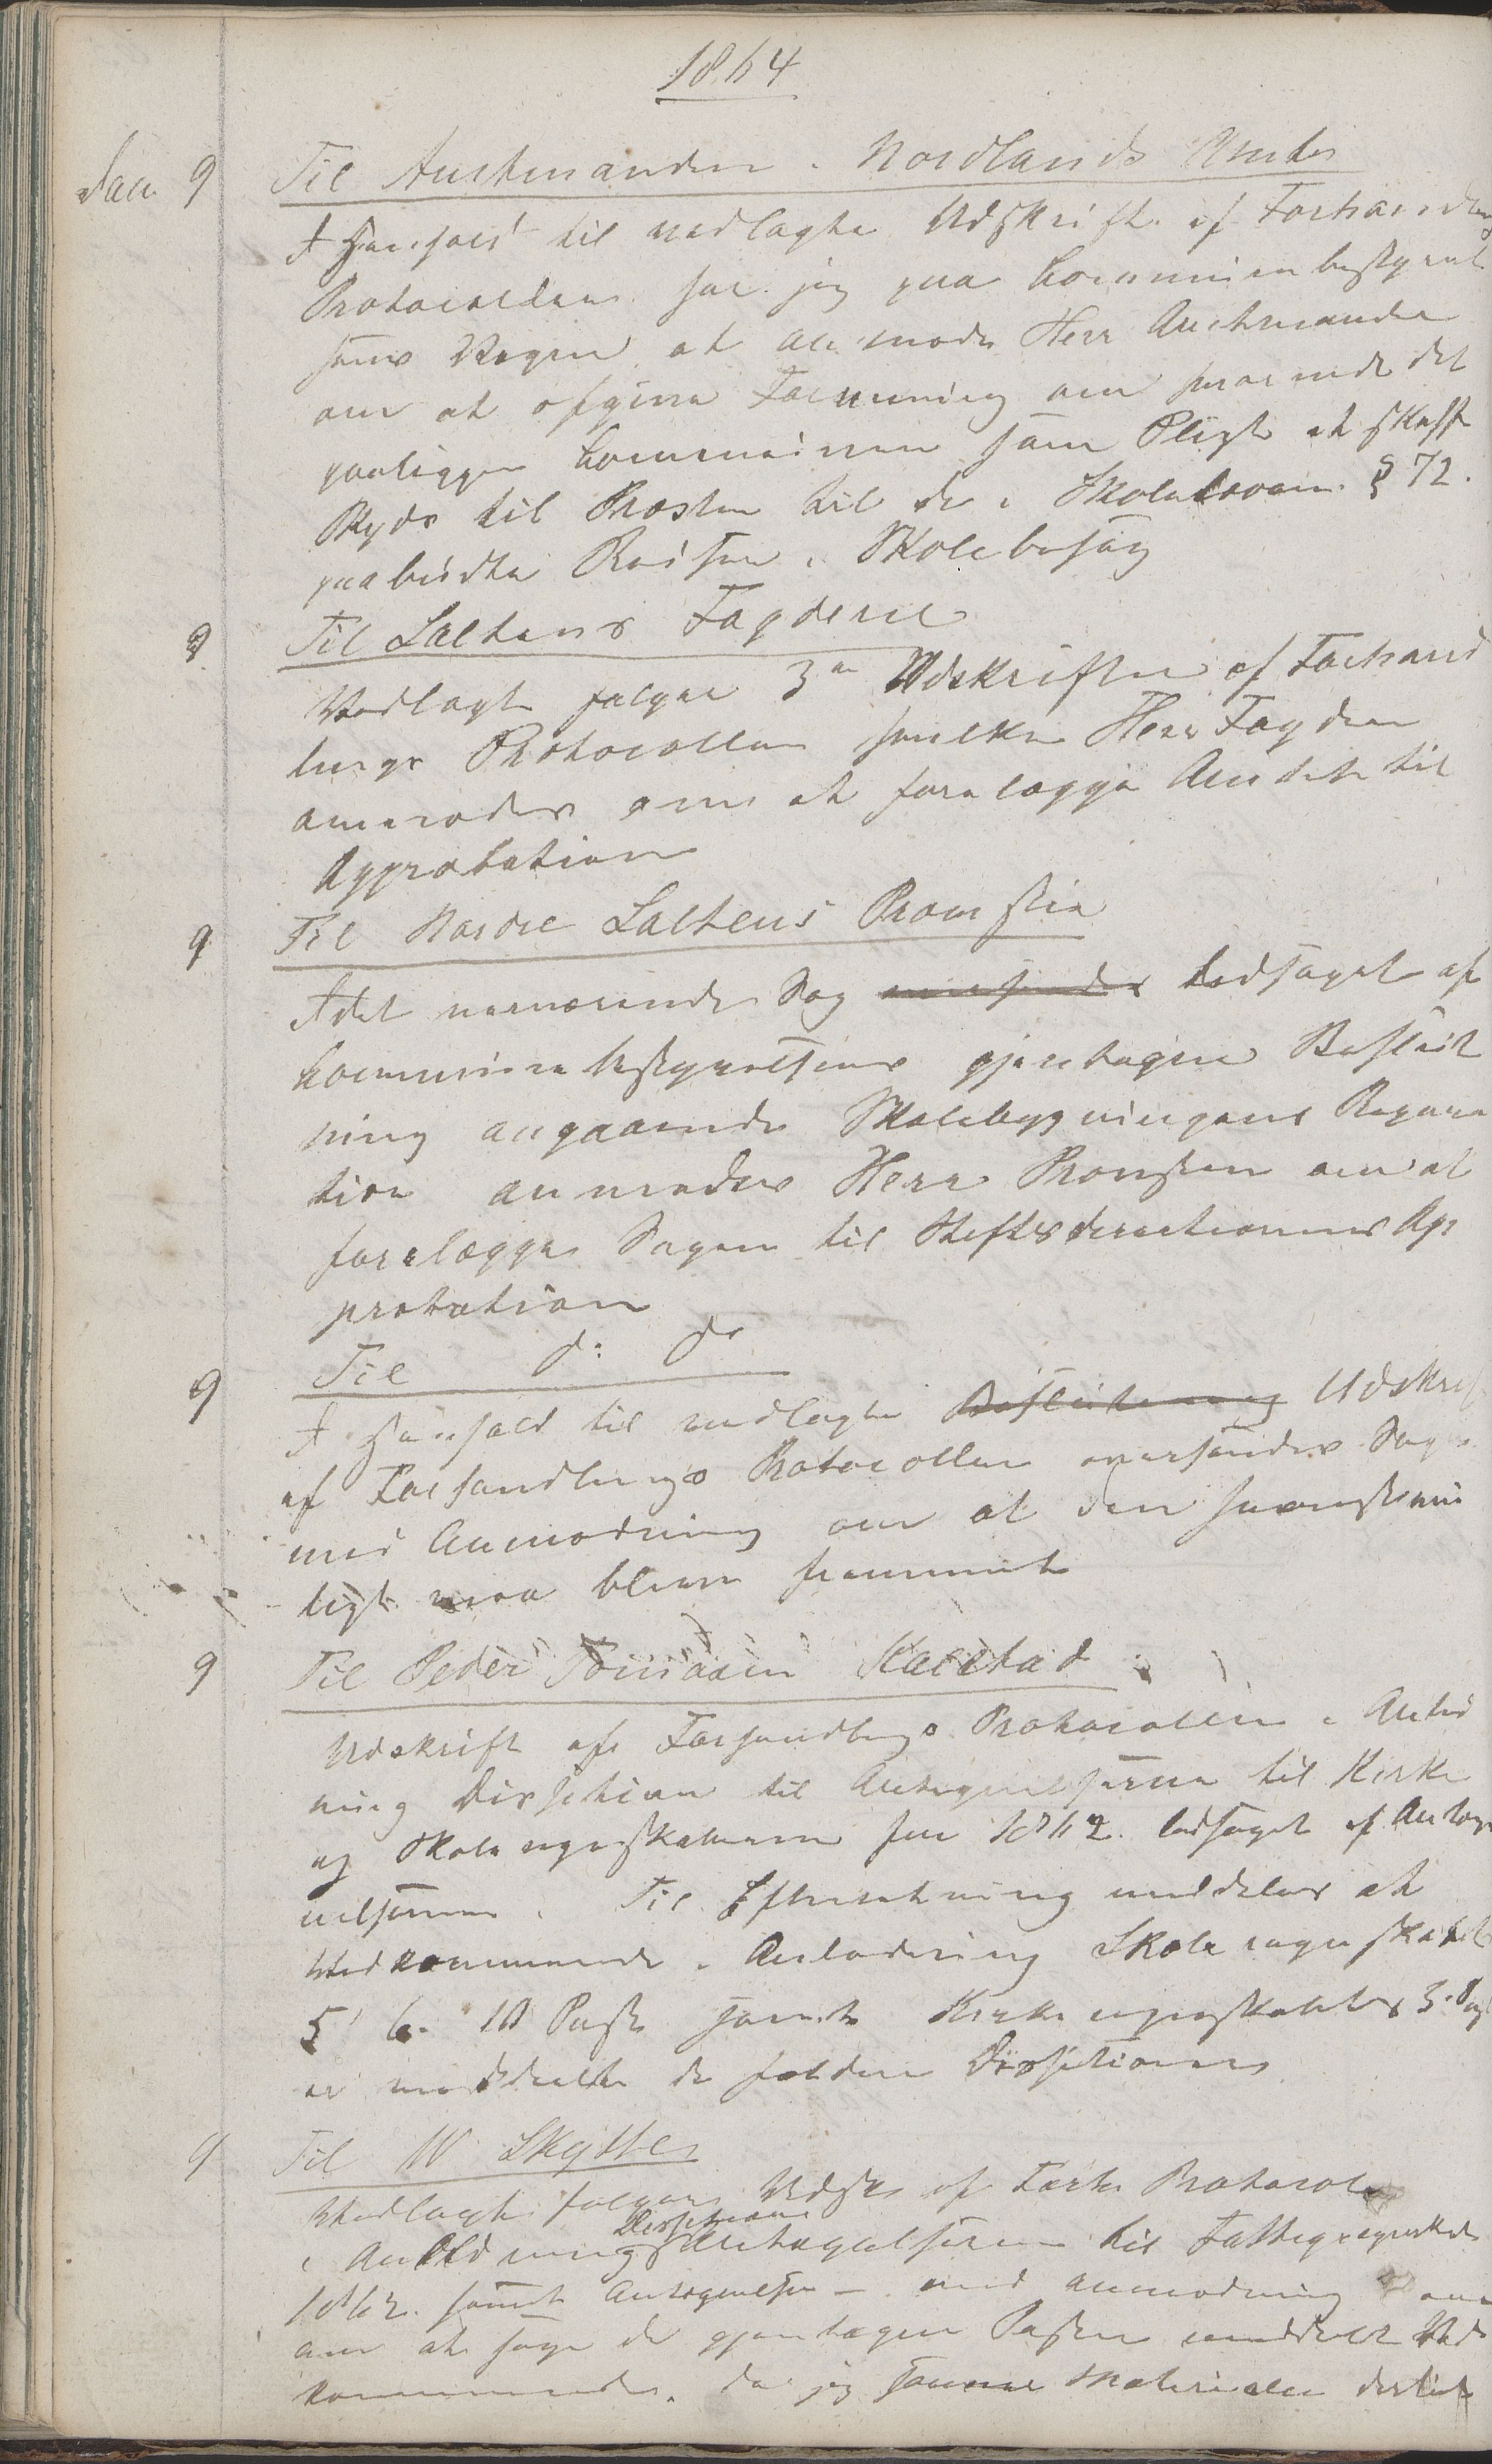 1864
Jan 9 Til Amtmanden i Nordlands Amt
I Henhold til vedlagte Udskrift af Forhandlings
Protocollen har jeg paa Communebestyrel
sens Vegne at anmode Herr Amtmanden
om at afgive Formening om hvorvidt det
paaligger Communen som Pligt at skaffe
Skyds til Præsten til de i Skoleloven § 72.
paabudte Reiser i Skolebesøg
9 Til Saltens Fogderie
Vedlagt følger 3de Udskrifter af Forhand
lings Protocollen hvilke Herr Fogden
anmodes om at forelægge Amtet til
Approbation
9 Til Nordre Saltens Provstie
I det nærværende Sag ledsaget af
Communebestyrelsens gjentagne Beslut
ning angaaende Skolebygningens Repara
tion anmodes Herr Provsten om at
forelægge Sagen til Stiftsdirectionens Ap
probation
9 Til do do
I Henhold til vedlagte Beslutning Udskrift
af Forhandlings Protocollen oversendes Sagen
med Anmodning om at den hvorst
ligt maa blive fremmet
9 Til Peder Tomassen Kalstad
Udskrift af Forhandlings Protocollen i Anled
ning Decision til Antegnelserne til Kirke
og Skoleregnskaberne for 1862. ledsaget af Anteg
nelserne. Til Efterretning meddeles at
Vedkommende i Anledning Skoleregnskabets
5 6. 10 Post samt Kirkeregnskabets 3. Post
er meddelte de faldne Decisioner
9 Til W Skytte
Vedlagt følger Udsk. af Forh. Protocol
i Anledning Decisioner Antegnelserne til Fattigregnskab
1862. samt Antegnelser – med anmodning om
om at søge de gjentagne Poster meddelt Ved
kommende. da jeg savner Materialer dertil